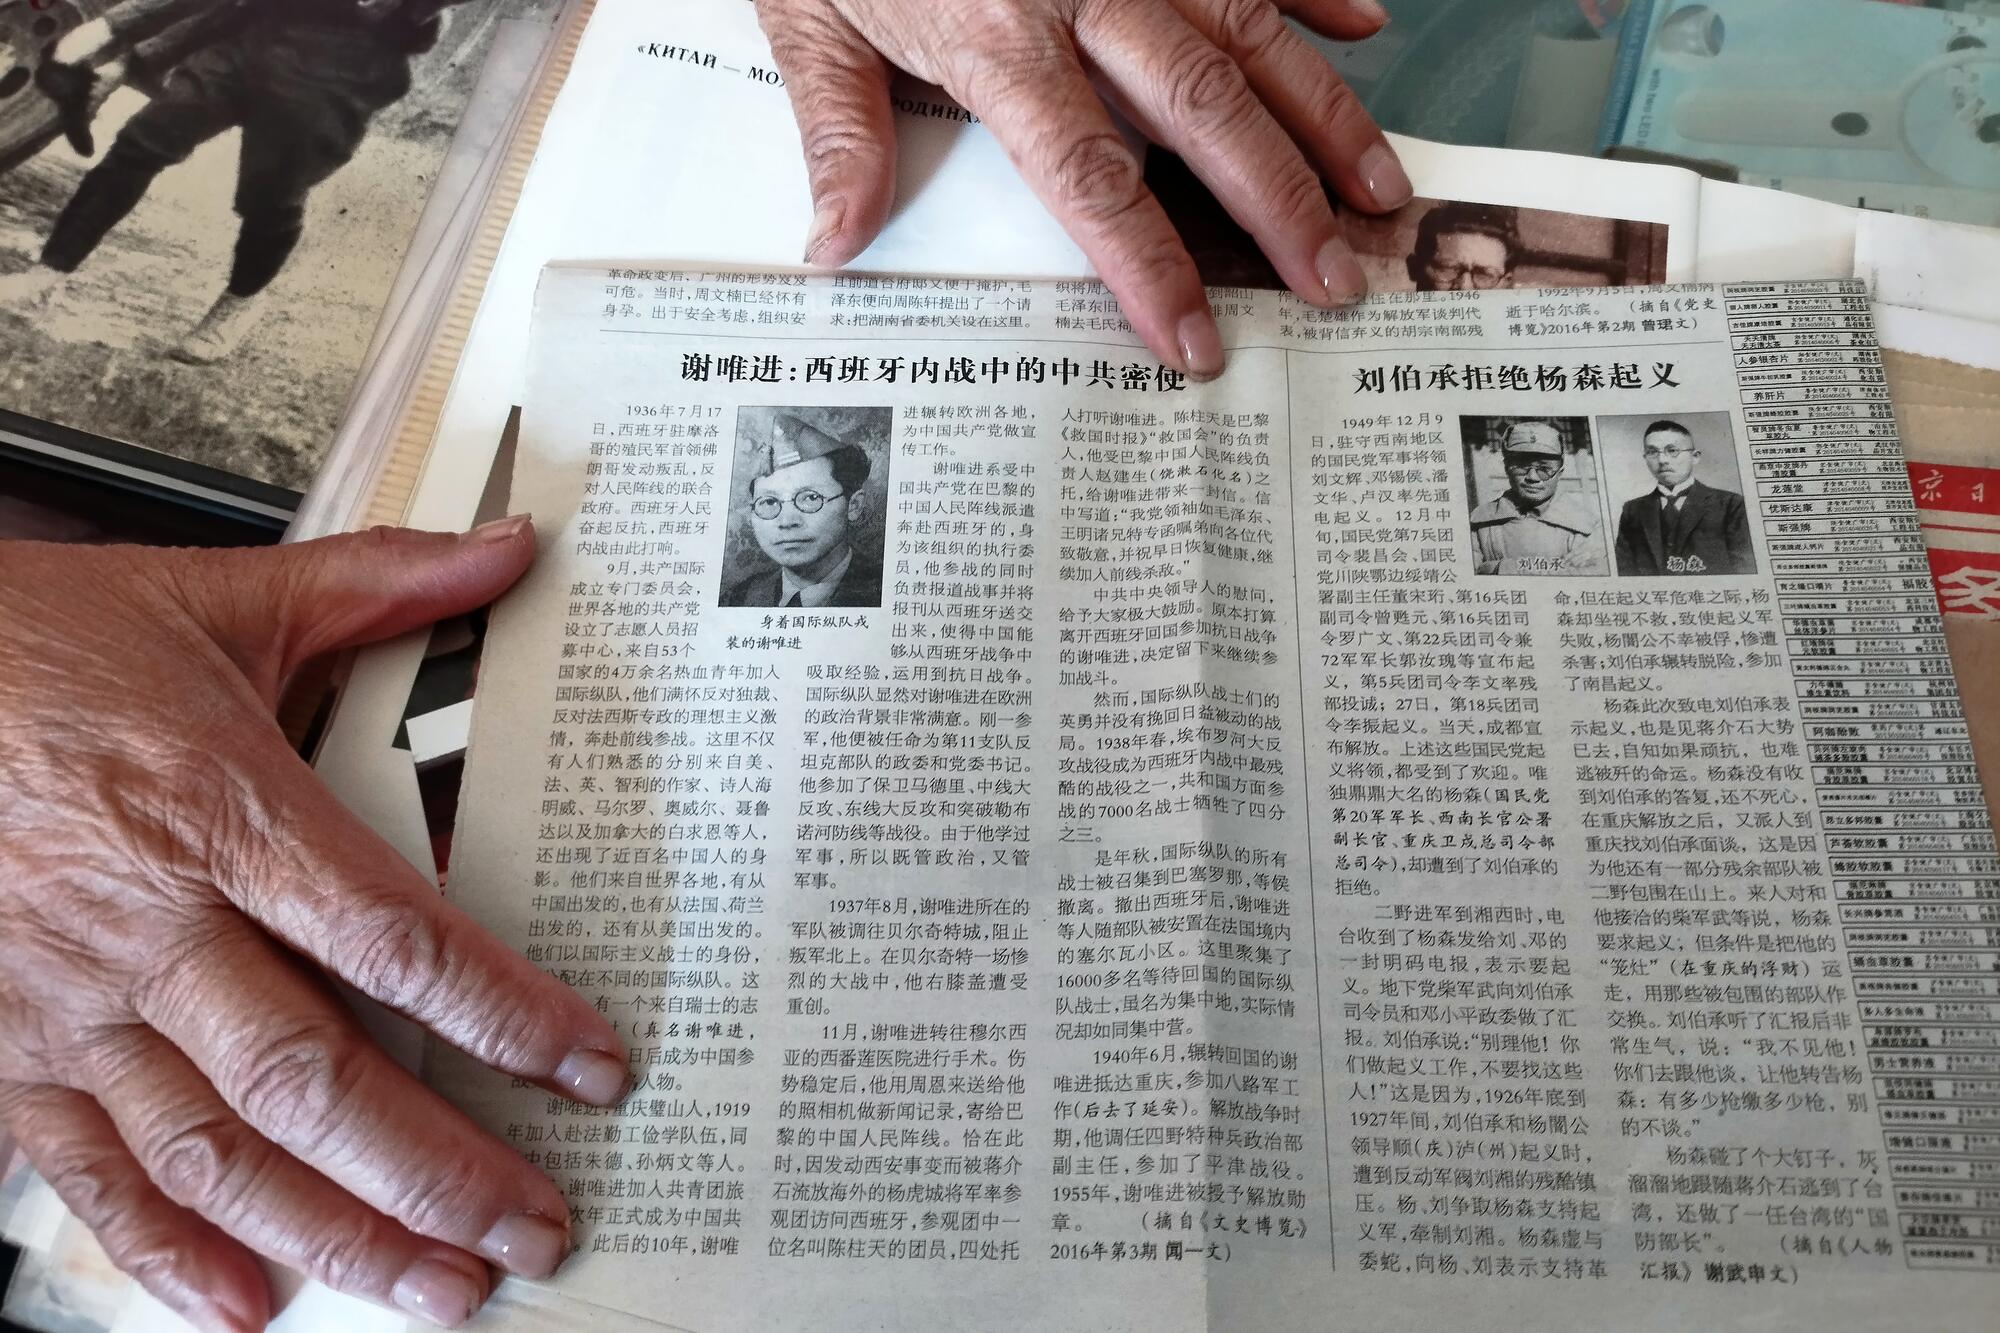 «КИТАЙ — МО
РОДИНА»
革命政变后、广州的形势岌岌
可危。当时，周文楠已经怀有
身孕。出于安全考虑，组织安
且前道台府邸又便于掩护，毛
泽东便向周陈轩提出了一个请
求：把湖南省委机关设在这里。
织将周
毛泽东旧
楠去毛民
到韶山
排周文
作，
住在那里。1946
年，毛楚雄作为解放军谈判代
表，被背信弃义的胡宗南部残
1992年9月5日，周文楠病
逝于哈尔滨。（摘自《党史
博览》2016年第2期 曾珺文）
谢唯进：西班牙内战中的中共密使
1936年7月17
日，西班牙驻摩洛
哥的殖民军首领佛
朗哥发动叛乱，反
对人民阵线的联合
政府。西班牙人民
奋起反抗，西班牙
内战由此打响。
9月，共产国际
成立专门委员会，
世界各地的共产党
设立了志愿人员招
募中心，来自53个
国家的4万余名热血青年加入
国际纵队，他们满怀反对独裁、
反对法西斯专政的理想主义激
情，奔赴前线参战。这里不仅
有人们熟悉的分别来自美、
法、英、智利的作家、诗人海
明威、马尔罗、奥威尔、聂鲁
达以及加拿大的白求恩等人，
还出现了近百名中国人的身
影。他们来自世界各地，有从
中国出发的，也有从法国、荷兰
出发的，还有从美国出发的。
他们以国际主义战士的身份，
分配在不同的国际纵队。这
有一个来自瑞士的志
（真名谢唯进，
日后成为中国参
人物。
谢唯进，重庆璧山人，1919
年加入赴法勤工俭学队伍，同
中包括朱德、孙炳文等人。
谢唯进加入共青团旅
次年正式成为中国共
。此后的10年，谢唯
身着国际纵队戎
装的谢唯进
进辗转欧洲各地，
为中国共产党做宣
传工作。
谢唯进系受中
国共产党在巴黎的
中国人民阵线派遣
奔赴西班牙的，身
为该组织的执行委
员，他参战的同时
负责报道战事并将
报刊从西班牙送交
出来，使得中国能
够从西班牙战争中
吸取经验，运用到抗日战争。
国际纵队显然对谢唯进在欧洲
的政治背景非常满意。刚一参
军，他便被任命为第11支队反
坦克部队的政委和党委书记。
他参加了保卫马德里、中线大
反攻、东线大反攻和突破勒布
诺河防线等战役。由于他学过
军事，所以既管政治，又管
军事。
1937年8月，谢唯进所在的
军队被调往贝尔奇特城，阻止
叛军北上。在贝尔奇特一场惨
烈的大战中，他右膝盖遭受
重创。
11月，谢唯进转往穆尔西
亚的西番莲医院进行手术。伤
势稳定后，他用周恩来送给他
的照相机做新闻记录，寄给巴
黎的中国人民阵线。恰在此
时，因发动西安事变而被蒋介
石流放海外的杨虎城将军率参
观团访问西班牙，参观团中一
位名叫陈柱天的团员，四处托
人打听谢唯进。陈柱天是巴黎
《救国时报》“救国会”的负责
人，他受巴黎中国人民阵线负
责人赵建生（饶漱石化名）之
托，给谢唯进带来一封信。信
中写道：“我党领袖如毛泽东、
王明诸兄特专函嘱弟向各位代
致敬意，并祝早日恢复健康，继
续加入前线杀敌。”
中共中央领导人的慰问，
给予大家极大鼓励。原本打算
离开西班牙回国参加抗日战争
的谢唯进，决定留下来继续参
加战斗。
然而，国际纵队战士们的
英勇并没有挽回日益被动的战
局。1938年春，埃布罗河大反
攻战役成为西班牙内战中最残
酷的战役之一，共和国方面参
战的7000名战士牺牲了四分
之三。
是年秋，国际纵队的所有
战士被召集到巴塞罗那，等候
撤离。撤出西班牙后，谢唯进
等人随部队被安置在法国境内
的塞尔瓦小区。这里聚集了
16000多名等待回国的国际纵
队战士，虽名为集中地，实际情
况却如同集中营。
1940年6月，辗转回国的谢
唯进抵达重庆，参加八路军工
作（后去了延安）。解放战争时
期，他调任四野特种兵政治部
副主任，参加了平津战役。
1955年，谢唯进被授予解放勋
章。（摘自《文史博览》
2016年第3期 闻一文）
刘伯承拒绝杨森起义
1949年12月9
日，驻守西南地区
的国民党军事将领
刘文辉、邓锡侯、潘
文华、卢汉率先通
电起义。12月中
旬，国民党第7兵团
司令裴昌会、国民
党川陕鄂边绥靖公
署副主任董宋珩、第16兵团
副司令曾甦元、第16兵团司
令罗广文、第22兵团司令兼
72军军长郭汝瑰等宣布起
义，第5兵团司令李文率残
部投诚；27日，第18兵团司
令李振起义。当天，成都宣
布解放。上述这些国民党起
义将领，都受到了欢迎。唯
独鼎鼎大名的杨森（国民党
第20军军长、西南长官公署
副长官、重庆卫戍总司令部
总司令），却遭到了刘伯承的
拒绝。
二野进军到湘西时，电
台收到了杨森发给刘、邓的
一封明码电报，表示要起
义。地下党柴军武向刘伯承
司令员和邓小平政委做了汇
报。刘伯承说：“别理他！你
们做起义工作，不要找这些
人！”这是因为，1926年底到
1927年间，刘伯承和杨闇公
领导顺（庆）泸（州）起义时，
遭到反动军阀刘湘的残酷镇
压。杨、刘争取杨森支持起
义军，牵制刘湘。杨森虚与
委蛇，向杨、刘表示支持革
刘伯承
杨森
命，但在起义军危难之际，杨
森却坐视不救，致使起义军
失败，杨闇公不幸被俘，惨遭
杀害；刘伯承辗转脱险，参加
了南昌起义。
杨森此次致电刘伯承表
示起义，也是见蒋介石大势
已去，自知如果顽抗，也难
逃被歼的命运。杨森没有收
到刘伯承的答复，还不死心，
在重庆解放之后，又派人到
重庆找刘伯承面谈，这是因
为他还有一部分残余部队被
二野包围在山上。来人对和
他接洽的柴军武等说，杨森
要求起义；但条件是把他的
“笼灶”（在重庆的浮财）运
走，用那些被包围的部队作
交换。刘伯承听了汇报后非
常生气，说：“我不见他！
你们去跟他谈，让他转告杨
森：有多少枪缴多少枪，别
的不谈。”
杨森碰了个大钉子，灰
溜溜地跟随蒋介石逃到了台
湾，还做了一任台湾的“国
防部长”。（摘自《人物
汇报》谢武申文）
人参银杏片
养肝片
龙莲堂
优斯达康
斯强牌
阿咖酚散
芦荟软胶囊
蜂胶软胶囊
多人多生命液
男士营养液
京日
冬
with two LED